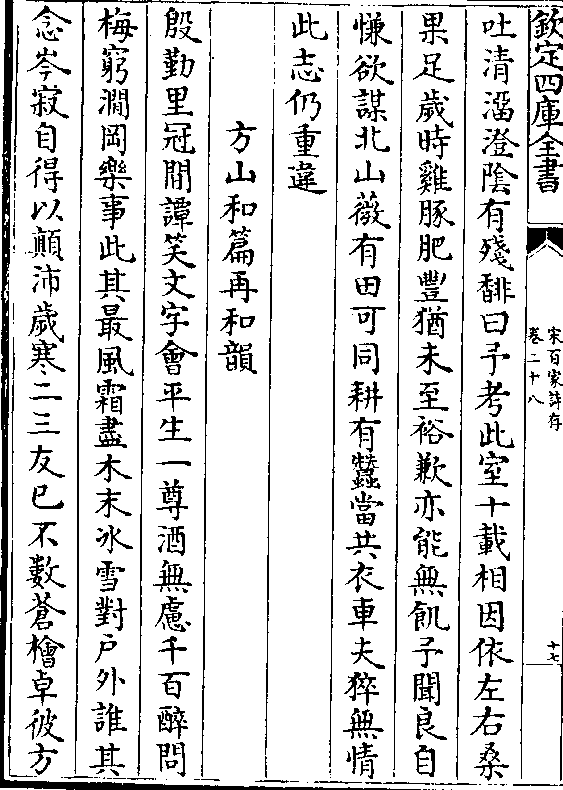 欽定四庫全書
宋百家詩存
卷二十八
十七
吐清溜澄陰有殘馡曰予考此室十載相因依左右桑
果足歲時雞豚肥豐猶未至裕歉亦能無飢予聞良自
慊欲謀北山薇有田可同耕有蠶當共衣車夫猝無情
此志仍重違
方山和篇再和韻
殷勤里冠間譚笑文字會平生一尊酒無慮千百醉問
梅窮澗岡樂事此其最風霜盡木末冰雪對户外誰其
念岑寂自得以顛沛歲寒二三友已不數蒼檜卓彼方